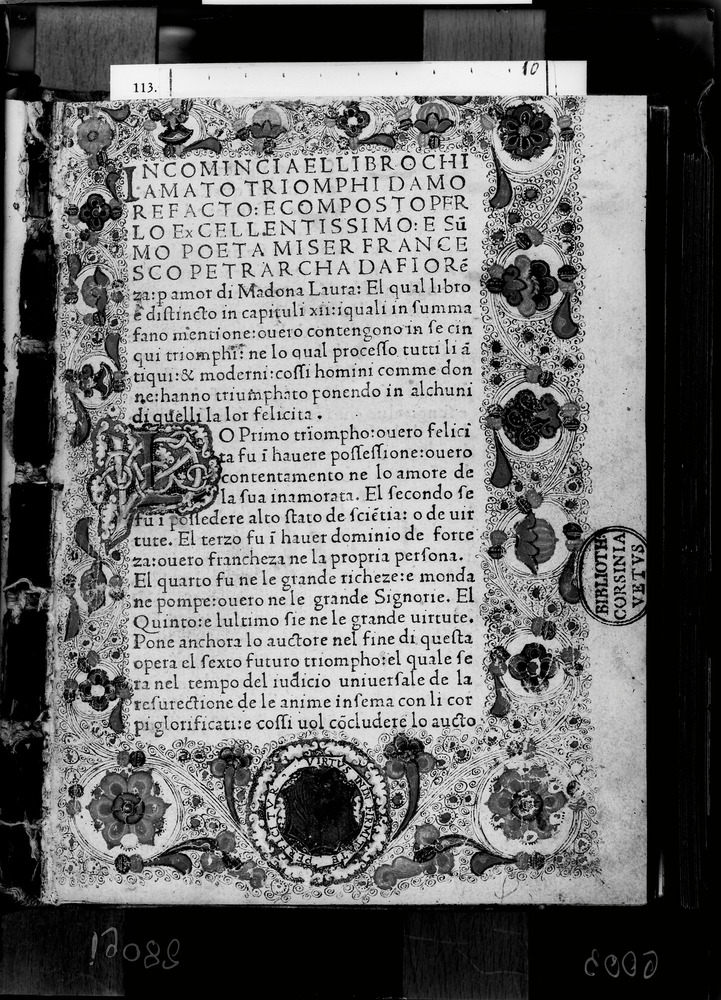 113.
10
INCOMINCIA EL LIBRO CHI
AMATO TRIOMPHI DAMO
RE FACTO: E COMPOSTO PER
LO ExCELLENTISSIMO: E Sū
MO POETA MISER FRANCE
SCO PETRARCHA DA FIORē
za: p amor di Madona Laura: El qual libro
è distincto in capituli xii: iquali in summa
fano mentione: ouero contengono in se cin
qui triomphi: ne lo qual processo tutti li ā
tiqui: & moderni: cossi homini comme don
ne: hanno triumphato ponendo in alchuni
di quelli la lor felicita.
LO Primo triompho: ouero felici
ta fu ī hauere possessione: ouero
contentamento ne lo amore de
la sua inamorata. El secondo se
fu ī possedere alto stato de sciētia: o de uir
tute. El terzo fu ī hauer dominio de forte
za: ouero francheza ne la propria persona.
El quarto fu ne le grande richeze: e monda
ne pompe: ouero ne le grande Signorie. El
Quinto: e lultimo sie ne le grande uirtute.
Pone anchora lo auctore nel fine di questa
opera el sexto futuro triompho: el quale se
ra nel tempo del iudicio uniuersale de la
resurectione de le anime insema con li cor
pi glorificati: e cossi uol cōcludere lo aucto
BIBLIOTH
CORSINIA
VETVS